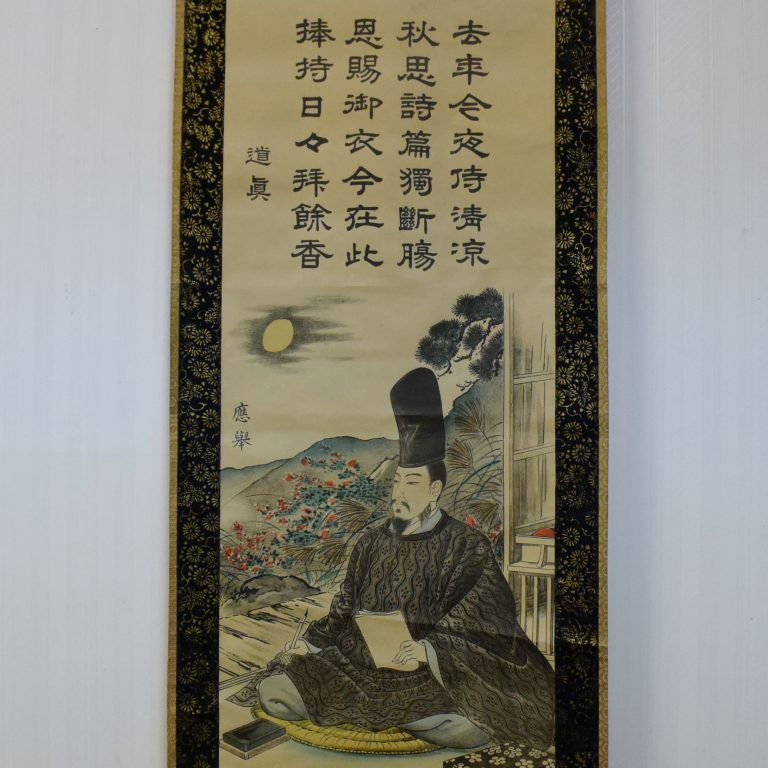 去年今夜侍清凉
秋思詩篇獨斷腸
恩賜御衣今在此
捧持日々拜餘香
道眞
應舉